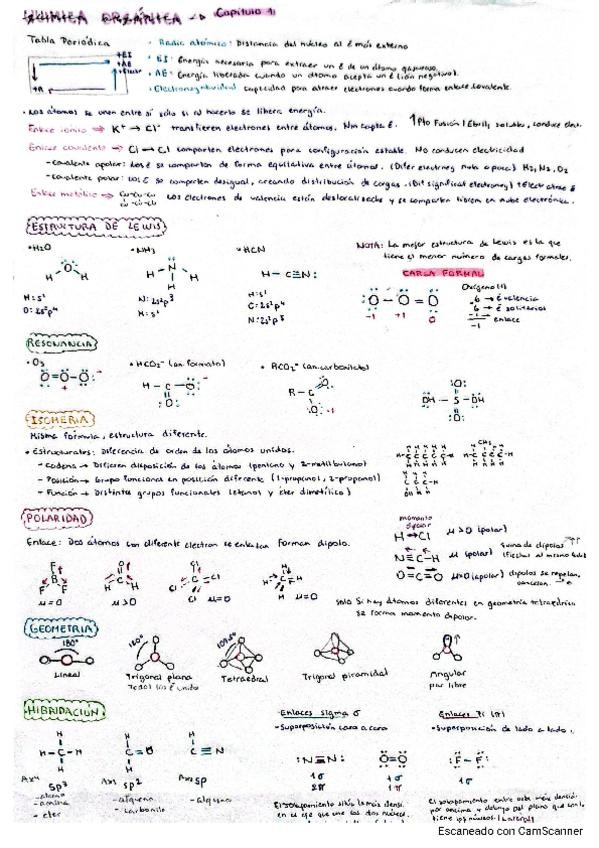 QUÍMICA ORGÁNICA → Capítulo 1
Tabla Periódica
• Radio atómico: Distancia del núcleo al ē más externo
• EI: Energía necesaria para extraer un ē de un átomo gaseoso.
• AE: Energía liberada cuando un átomo acepta un ē (ión negativo).
• Electronegatividad: Capacidad para atraer electrones cuando forma enlace covalente.
• Los átomos se unen entre sí sólo si al hacerlo se libera energía.
Enlace iónico → K⁺ → Cl⁻ transfieren electrones entre átomos. Nm capta ē. ↑Pto Fusión/Ebull, soluble, conduce elec.
Enlace covalente → Cl → Cl comparten electrones para configuración estable. No conducen electricidad
- Covalente apolar: Los ē se comparten de forma equitativa entre átomos. (Difer electroneg nula o poca) H₂, N₂, O₂
- Covalente polar: Los ē se comparten desigual, creando distribución de cargas. (Dif significat electroneg)
Enlace metálico → Los electrones de valencia están deslocalizados y se comparten libres en nube electrónica.
ESTRUCTURA DE LEWIS
• H₂O • NH₃ • HCN
NOTA: La mejor estructura de Lewis es la que
tiene el menor número de cargas formales.
CARGA FORMAL
H-C≡N:
Oxígeno (1)
6 → ē valencia
6 → ē solitarios
1 → enlace
-1
H: s¹
O: 2s²p⁴
N: 2s²p³
H: s¹
H: s¹
C: 2s²p²
N: 2s²p³
-1 +1 0
RESONANCIA
• O₃ • HCO₂⁻ (an. formato) • RCO₂⁻ (an. carboxilato)
ISOMERIA
Misma fórmula, estructura diferente.
• Estructurales: Diferencia de orden de los átomos unidos.
- Cadena → Difieren disposición de los átomos (pentano y 2-metilbutano)
- Posición → Grupo funcional en posición diferente (1-propanol, 2-propanol)
- Función → Distinto grupos funcionales (etanol y éter dimetílico)
POLARIDAD
Enlace: Dos átomos con diferente electron se enlazan forman dipolo.
momento dipolar
H→Cl μ>0 (polar)
N≡C-H μ (polar)
O=C=O μ=0 (apolar)
Suma de dipolos
dipolos se repelen,
cancelan
μ=0 μ>0 μ=0 μ=0
Solo si hay átomos diferentes en geometría tetraédrica
se forma momento dipolar.
GEOMETRIA
180° 120° 109.5°
Lineal
Trigonal plana
Tetraedral
Trigonal piramidal
Angular
par libre
HIBRIDACIÓN
Enlaces sigma σ
- Superposición cara a cara
Enlaces Pi (π)
- Superposición de lado a lado.
:N≡N: O=O :F-F:
1σ 1σ 1σ
2π 1π
sp³ sp² sp
-amina
-éter
-alqueno
-carbonilo
-alquino
El solapamiento
en el eje que une los dos núcleos.
El solapamiento entre
por encima y debajo del plano que
Escaneado con CamScanner